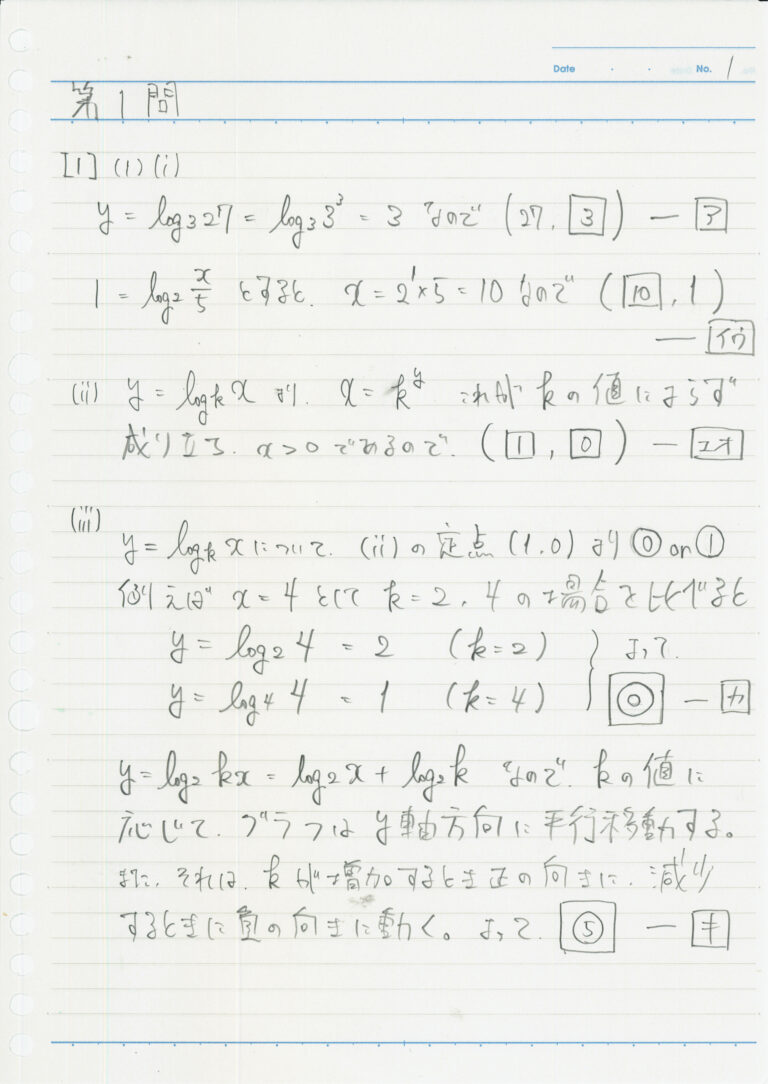 Date ・ ・ No. 1
第1問
[1] (1) (i)
y = log₃27 = log₃3³ = 3 なので (27, 3) ― ア
1 = log₂ x/5 とすると. x = 2¹×5 = 10 なので (10, 1)
― イウ
(ii) y = logₖx より. x = k^y これが kの値によらず
成り立ち. x>0であるので. (1, 0) ― エオ
(iii)
y = logₖxについて. (ii)の定点(1,0)より⓪or①
例えば x=4として k=2, 4の場合を比べると
y = log₂4 = 2 (k=2) } よって.
y = log₄4 = 1 (k=4) ⓪ ― カ
y = log₂kx = log₂x + log₂k なので. kの値に
応じて. グラフはy軸方向に平行移動する。
また. それは. kが増加するとき正の向きに. 減少
するときに負の向きに動く。よって. ⑤ ― キ